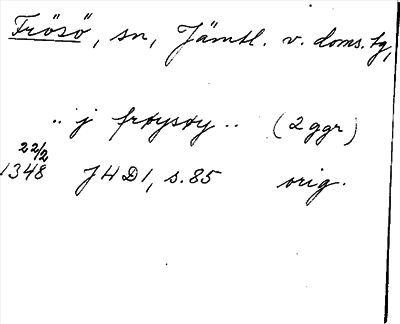 Frösö, sn, Jämtl. v. doms.tg,
.. j frøysøy .. (2 ggr)
22/2
1348 JHD1, s.85 orig.